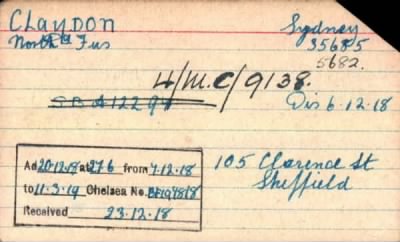 CLAYDON Sydney
North Fus 35685
5682.
4/M.C/9138.
Dis 6.12.18
Ad 20.12.18 at 27/6 from 7.12.18
to 11.3.19 Chelsea No.
Received 23.12.18
105 Clarence St
Sheffield